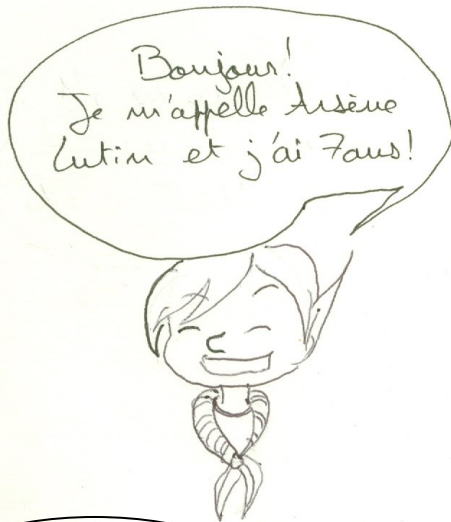 Bonjour!
Je m'appelle Arsène
Lutin et j'ai 7 ans!